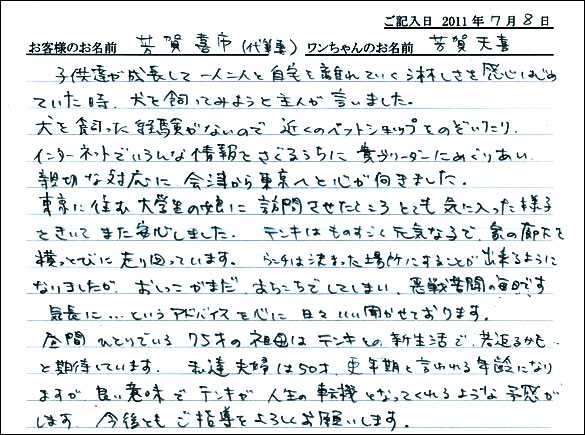 ご記入日 2011年7月8日
お客様のお名前 芳賀喜市(代筆妻) ワンちゃんのお名前 芳賀天喜
子供達が成長して一人二人と自宅を離れていく淋しさを感じはじめ
ていた時、犬を飼ってみようと主人が言いました。
犬を飼った経験がないので 近くのペットショップをのぞいたり、
インターネットでいろんな情報をさぐるうちに 貴ブリーダーにめぐりあい、
親切な対応に 会津から東京へと心が向きました。
東京に住む大学生の娘に 訪問させたところ とても気に入った様子
をきいて また安心しました。 テンキはものすごく元気な子で、家の廊下で
横っとびに走り回っています。 ウンチは決まった場所にすることが出来るように
なりましたが、おしっこがまだ、あちこちでしてしまい、悪戦苦闘の毎日です
気長に...というアドバイスを心に 日々いい聞かせております。
昼間 ひとりでいる 75才の祖母は テンキとの新生活で、若返るかも
と期待しています。 私達夫婦は50才、更年期と言われる年齢になり
ますが、良い意味で テンキが 人生の転機となってくれるような予感が
します。今後とも ご指導をよろしくお願いします。